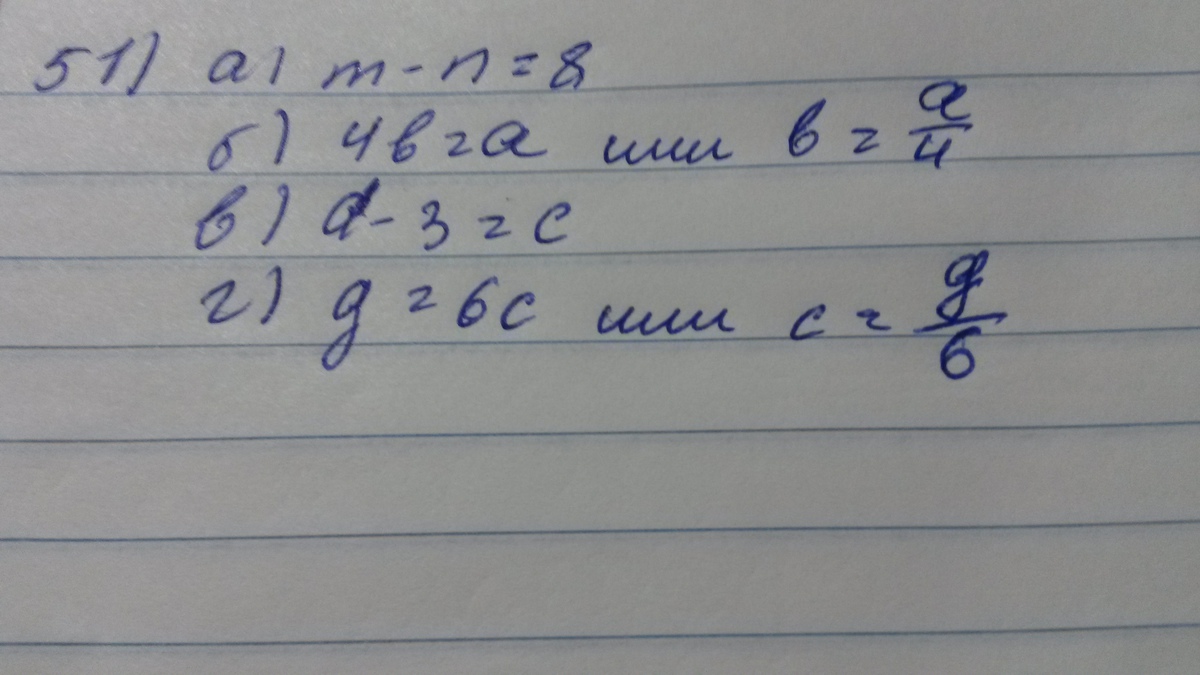 51) а) m - n = 8
б) 4b = a или b = a/4
в) d - 3 = c
г) g = 6c или c = g/6